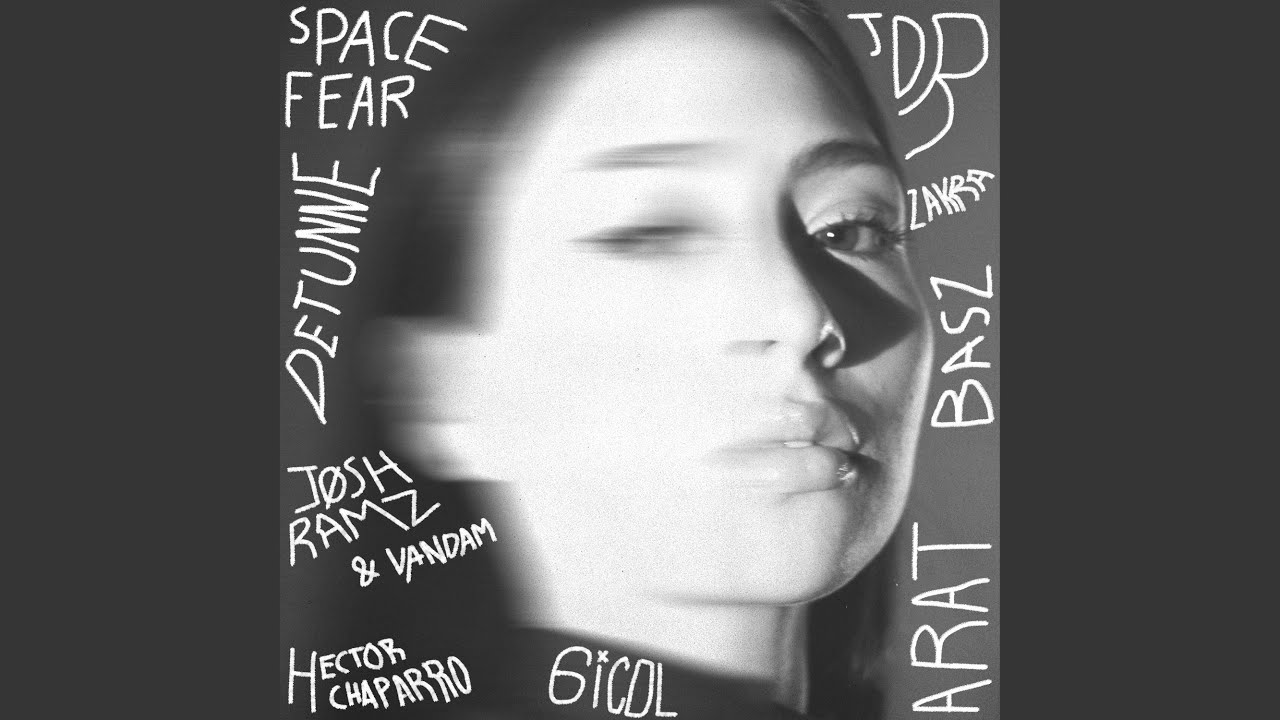 SPACE
FEAR
DETUNNE
JØSH
RAMZ
& VANDAM
HECTOR
CHAPARRO
6iCDL
ARAT
BASZ
ZAKRA